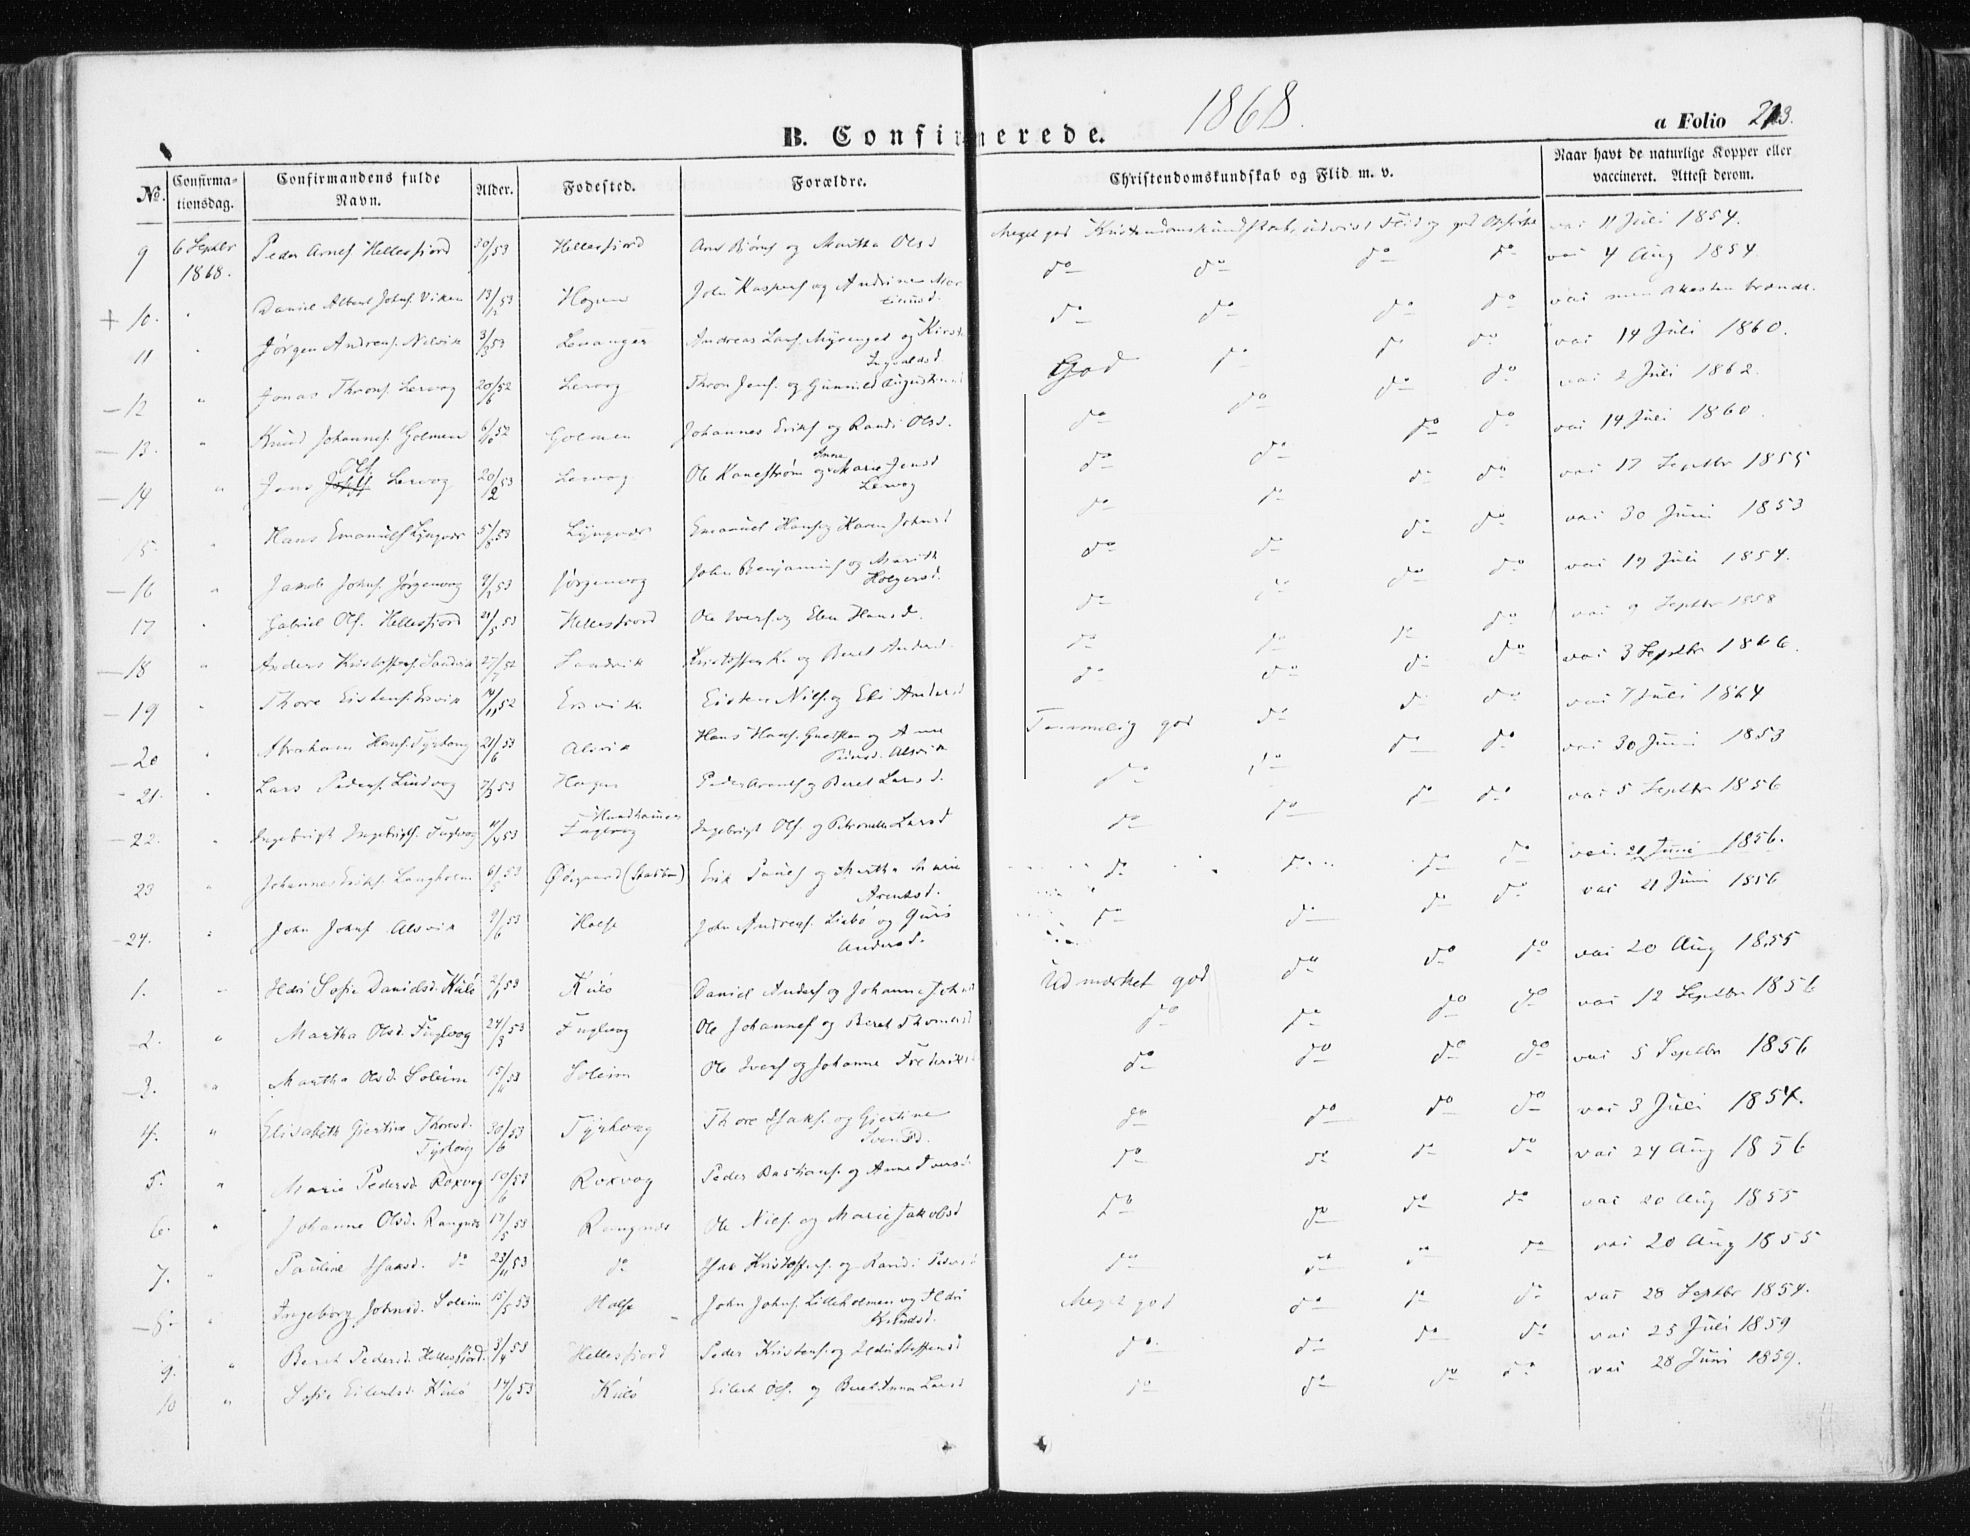 1868.
B. Confirmerede.
a Folio 213.
No. Confirmationsdag. Confirmandens fulde Navn. Alder. Fødested. Forældre. Christendomskundskab og Flid m. v. Naar havt de naturlige Kopper eller vaccineret. Attest derom.
9 6 Septbr 1868. Peder Arnes Hellesfjord 30/1 53 Hellesfjord Arns Bjørns og Martha Olsd Meget god Kristendomskundskab, udvist Flid og god Opførsel vac 11 Juli 1854.
+ 10. " Daniel Albert Johns. Viken 13/2 53 Hogen John Kaspers og Andrine Martinusd. do do do do vac 4 Aug 1854
11 " Jørgen Andreas. Nelvik 3/3 53 Levanger Andreas Lars. Myrenget og Kirst Ingvaldsd do do do do vac men Attesten brændt.
- 12 " Jonas Throns. Lervog 20/6 52 Lervog Thron Jens. og Gunnild Augustinusd God do do do vac 14 Juli 1860.
- 13. " Knud Johannes. Golmen 52 Golmen Johannes Eriks og Randi Olsd. do do do do vac 2 Juli 1862.
- 14 " Jens Ols. Lervog 20/2 53 Lervog Ole Kanestrøm og Anne Marie Jensd Lervog do do do vac 14 Juli 1860.
15. " Hans Emanuels Lyngvær 5/8 53 Lyngvær Emanuel Hans. og Karen Johnsd do do do do vac 17 Septbr 1855
- 16 " Jakob Johns. Jørgenvog 9/2 53 Jørgenvog John Benjamins og Marith Holgersd. do do do do vac 30 Juni 1853
17 " Gabriel Ols. Hellesfjord 21/5 53 Hellesfjord Ole Ivers. og Elen Hansd. do do do vac 19 Juli 1854.
- 18 " Anders Kristoffers. Sandvik 27/7 52 Sandvik Kristoffer K. og Beret Andersd. do do do do vac 9 Septbr 1858
- 19 " Thore Eistens. Ersvik 14/11 52 Ersvik Eisten Nils. og Eli Andersd do do do do vac 3 Septbr 1866.
- 20 " Abraham Hans. Tyrhoug 21/6 53 Alsvik Hans Hans. og Anne Alsvik Temmelig god do do do vac 7 Juli 1864
- 21. " Lars Peders. Lindvog 7/3 53 Hogen Peder Arents og Beret Larsd. do do do do vac 30 Juni 1853
- 22. " Ingebrigt Ingebrigts. Fuglvog 4/4 53 Hundhammer Fuglvog Ingebrigt Ols. og Petronelle Larsd do do do do vac 5 Septbr 1856
23 " Johannes Eriks. Langholm 6/5 53 Ødegaard Erik Pauls og Martha Marie Arentsd. do do do do vac. 21 Juni 1856.
- 24. " John Johns. Alsvik 9/6 53 Halse John Andreas. Liabø og Guri Andersd. do do do do vac 21 Juni 1856
1. " Ildri Sofie Danielsd. Kulø 2/1 53 Kulø Daniel Anders og Johanne Johnsd Udmærket god do do do vac 20 Aug 1855
2. " Martha Olsd. Fuglvog 24/3 53 Fuglvog Ole Johannes og Beret Thomasd do do do do vac 12 Septbr 1856
- 3. " Martha Olsd. Soleim 15/11 53 Soleim Ole Ivers og Johanne Frederiksd do do do do vac 5 Septbr 1856
4. " Elisabeth Gjertine Thoresd. Tyrhoug 30/6 53 Tyrhoug Thore Isaks. og Gjertine Ivarsd. do do do do vac 3 Juli 1854.
5. " Marie Pedersd. Roxvog 10/6 53 Roxvog Peder Bastians. og Anne Iversd. do do do do vac 24 Aug 1856
6. " Johanne Olsd. Rangnæs 17/5 53 Rangnæs Ole Nils. og Marie Jakobsd do do do do vac 20 Aug 1855
7. " Pauline Isaksd. do 23/11 53 do Isak Kristoffers. og Randi Pedersd do do do do vac 20 Aug 1855
- 8. " Ingeborg Johnsd. Soleim 15/5 53 Halse John Johns. Lilleholmen og Ildri Knudsd. Meget god do do do vac 28 Septbr 1854.
9. " Beret Pedersd. Hellesfjord. 3/4 53 Hellesfjord Peder Kristens. og Ildri Steffensd do do do do vac 25 Juli 1859
10 " Sofie Eilertsd. Kulø 14/6 53 Kulø Eilert Ols. og Beret Anna Larsd do do do do vac 28 Juni 1859.